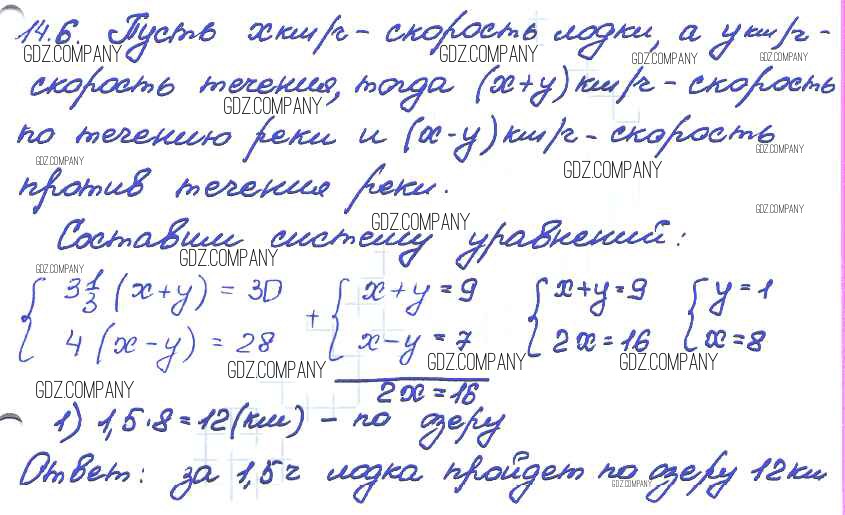 14.6. Пусть x км/ч - скорость лодки, а y км/ч -
GDZ.COMPANY GDZ.COMPANY GDZ.COMPANY GDZ.COMPANY
скорость течения, тогда (x+y) км/ч - скорость
GDZ.COMPANY
по течению реки и (x-y) км/ч - скорость
GDZ.COMPANY GDZ.COMPANY GDZ.COMPANY
против течения реки.
GDZ.COMPANY GDZ.COMPANY
Составим систему уравнений:
GDZ.COMPANY GDZ.COMPANY
{ 3 1/3 (x+y) = 30 + { x+y = 9 { x+y = 9 { y = 1
4 (x-y) = 28 x-y = 7 2x = 16 x = 8
GDZ.COMPANY GDZ.COMPANY GDZ.COMPANY
GDZ.COMPANY 2x = 16
1) 1,5·8 = 12 (км) - по озеру
Ответ: за 1,5 ч лодка пройдет по озеру 12 км
GDZ.COMPANY